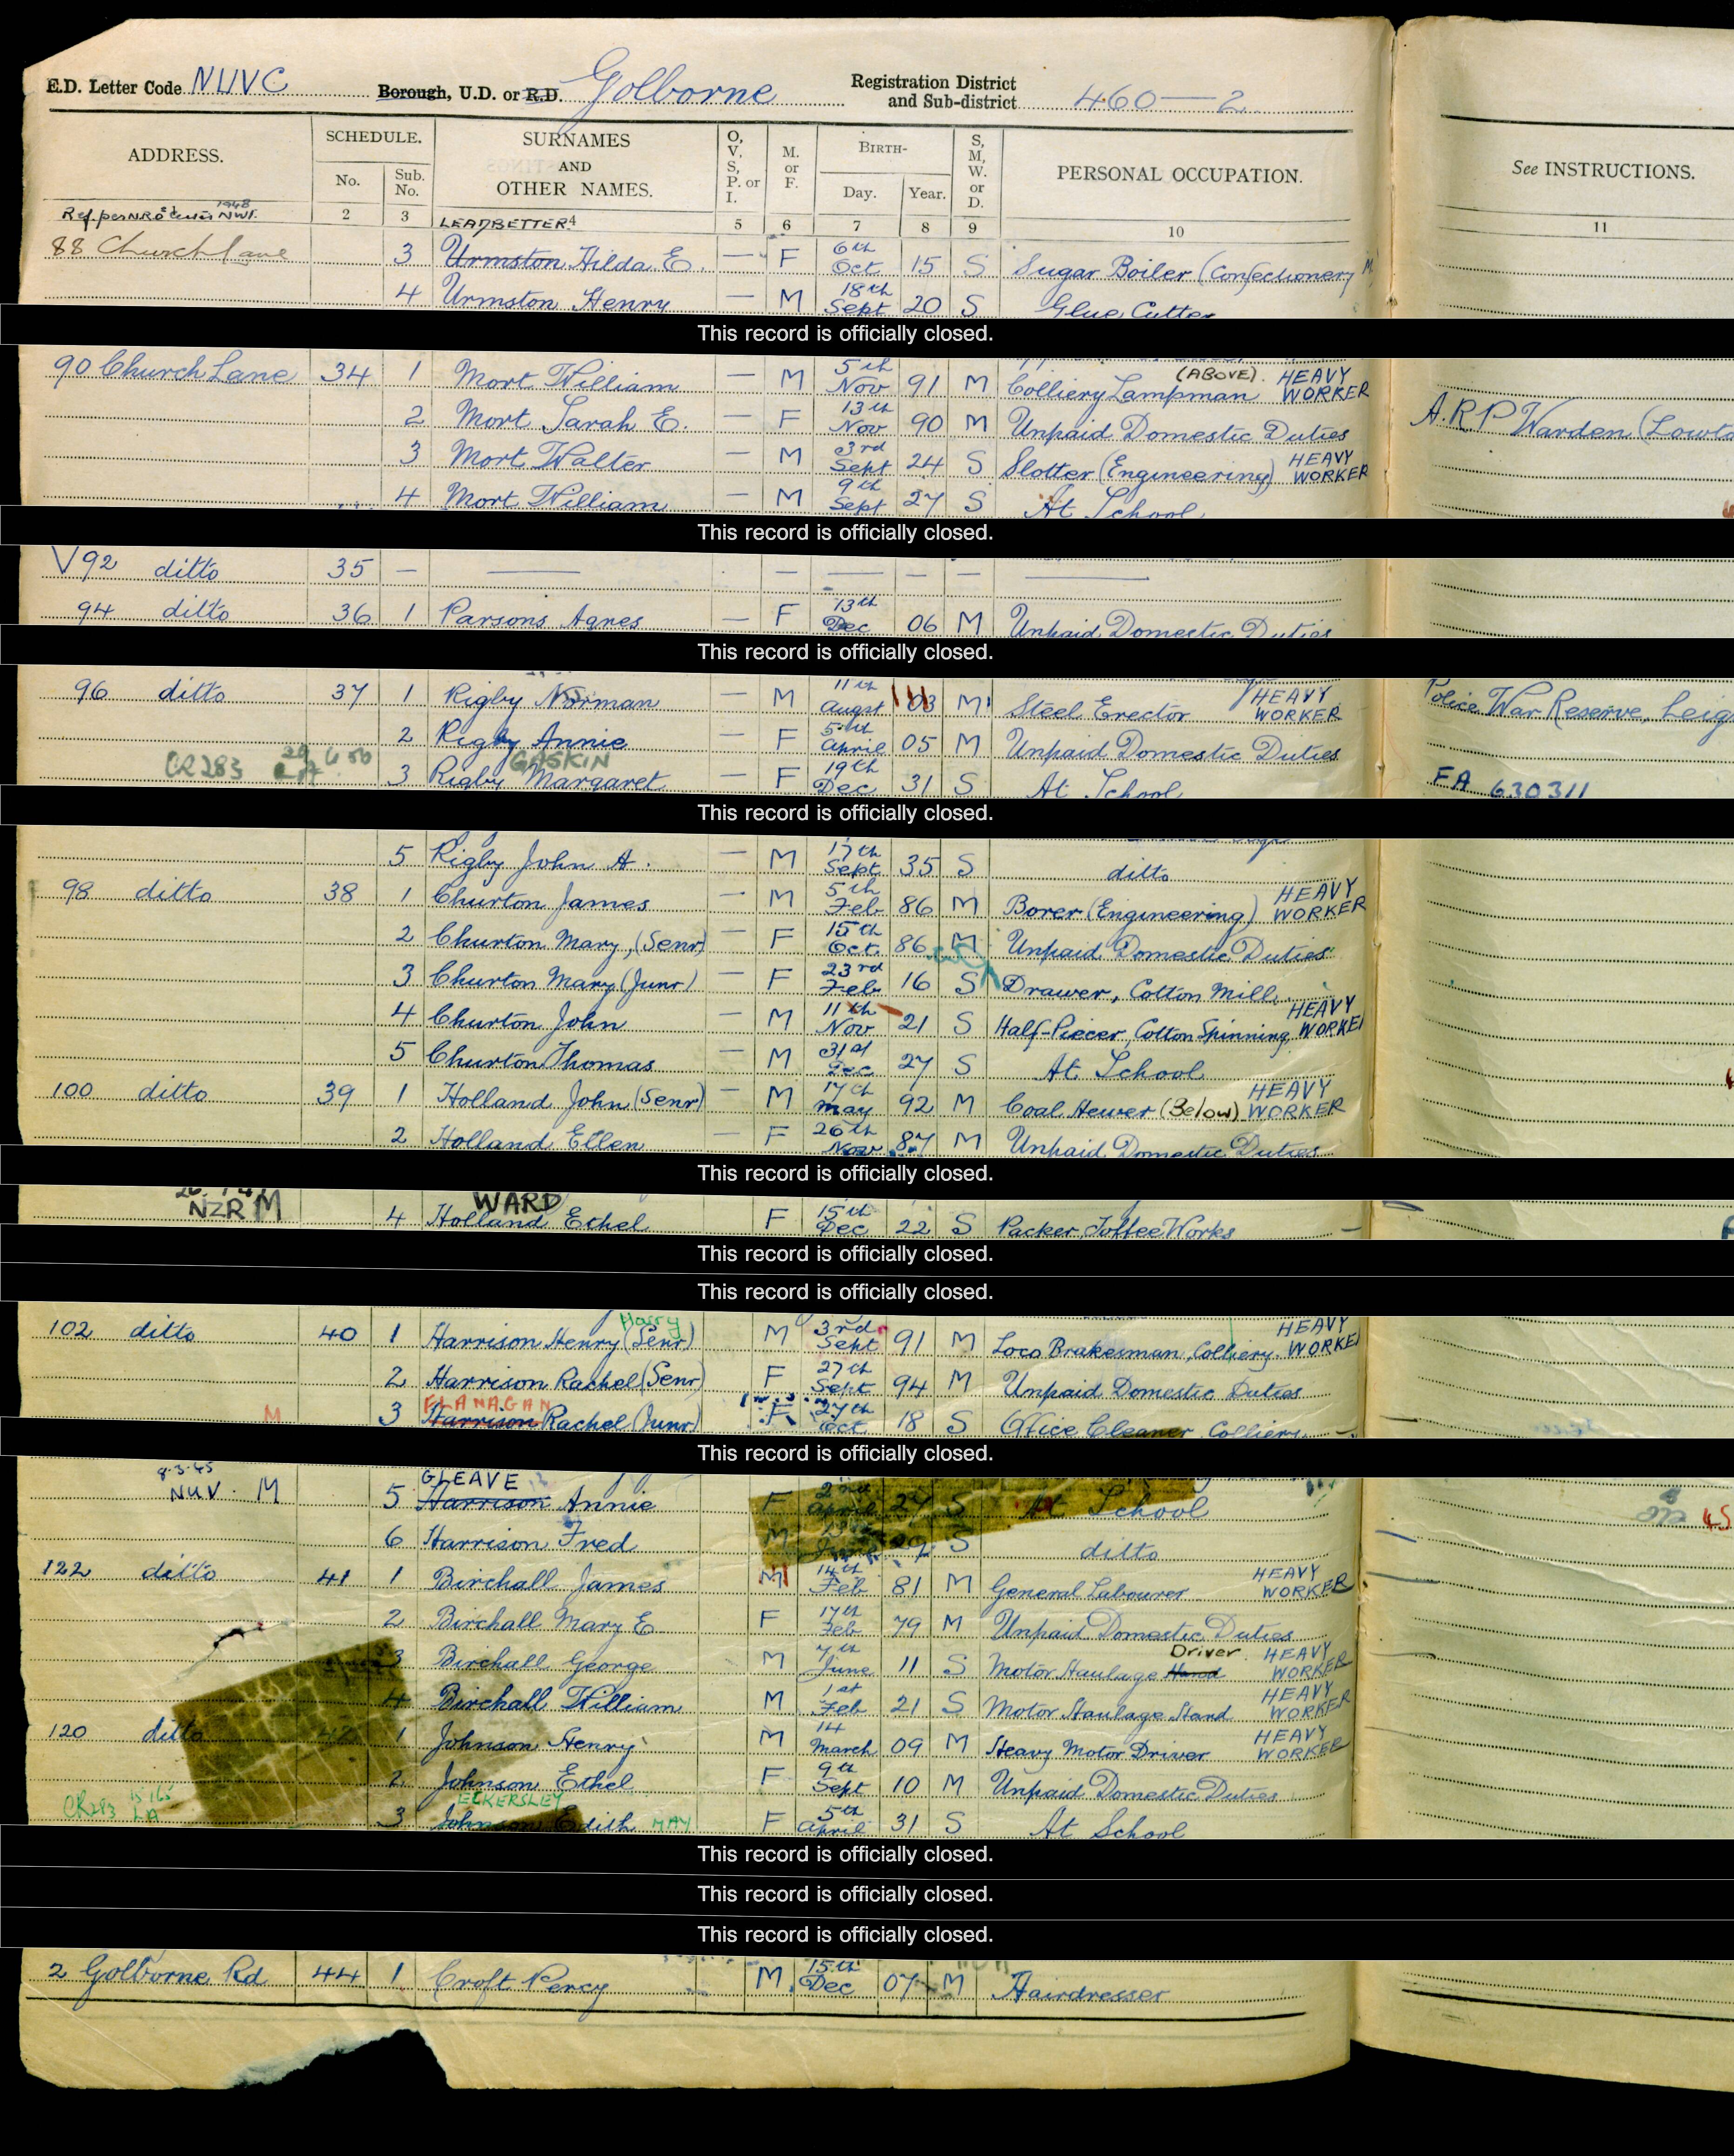 E.D. Letter Code NUVC Borough, U.D. or R.D. Golborne Registration District and Sub-district 460—2
ADDRESS. SCHEDULE. No. Sub. No. SURNAMES AND OTHER NAMES. O, V, S, P. or I. M. or F. BIRTH- Day. Year. S, M, W. or D. PERSONAL OCCUPATION. See INSTRUCTIONS.
2 3 4 5 6 7 8 9 10 11
1948
LEADBETTER
88 Church Lane 3 Urmston Hilda E. — F 6th Oct 15 S Sugar Boiler (Confectionery
4 Urmston Henry — M 18th Sept 20 S Glue Cutter
This record is officially closed.
90 Church Lane 34 1 Mort William — M 5th Nov 91 M Colliery Lampman (ABOVE). HEAVY WORKER
2 Mort Sarah E. — F 13th Nov 90 M Unpaid Domestic Duties A.R.P Warden
3 Mort Walter — M 3rd Sept 24 S Slotter (Engineering) HEAVY WORKER
4 Mort William — M 9th Sept 27 S At School
This record is officially closed.
V92 ditto 35 — — — — — — —
94 ditto 36 1 Parsons Agnes — F 13th Dec 06 M Unpaid Domestic Duties
This record is officially closed.
96 ditto 37 1 Rigby Norman — M 11th Augst 03 M Steel Erector HEAVY WORKER Police War Reserve, Leig
2 Rigby Annie — F 5th April 05 M Unpaid Domestic Duties
CR283 GASKIN
3 Rigby Margaret — F 19th Dec 31 S At School EA 630311
This record is officially closed.
5 Rigby John A. — M 17th Sept 35 S ditto
98 ditto 38 1 Churton James — M 5th Feb 86 M Borer (Engineering) HEAVY WORKER
2 Churton Mary, (Senr) — F 15th Oct. 86 M Unpaid Domestic Duties
3 Churton Mary (Junr) — F 23rd Feb 16 S Drawer, Cotton Mill
4 Churton John — M 11th Nov 21 S Half-Piecer, Cotton Spinning HEAVY WORKER
5 Churton Thomas — M 31st Dec 27 S At School
100 ditto 39 1 Holland John (Senr) — M 17th May 92 M Coal Hewer (Below) HEAVY WORKER
2 Holland Ellen — F 26th Nov 87 M Unpaid Domestic Duties
This record is officially closed.
NZR M WARD
4 Holland Ethel F 15th Dec 22 S Packer, Toffee Works —
This record is officially closed.
This record is officially closed.
Harry
102 ditto 40 1 Harrison Henry (Senr) M 3rd Sept 91 M Loco Brakesman, Colliery. HEAVY WORKER
2 Harrison Rachel (Senr) F 27th Sept 94 M Unpaid Domestic Duties
FLANAGAN
M 3 Harrison Rachel (Junr) F 27th Oct 18 S Office Cleaner, Colliery —
This record is officially closed.
8·3·45 GLEAVE
NUV. M 5 Harrison Annie F 2nd April 27 S At School
6 Harrison Fred M June 29 S ditto
122 ditto 41 1 Birchall James M 14th Feb 81 M General Labourer HEAVY WORKER
2 Birchall Mary E F 17th Feb 79 M Unpaid Domestic Duties
3 Birchall George M 7th June 11 S Motor Haulage Hand Driver HEAVY WORKER
4 Birchall William M 1st Feb 21 S Motor Haulage Hand HEAVY WORKER
120 ditto 42 1 Johnson Henry M 14 March 09 M Heavy Motor Driver HEAVY WORKER
2 Johnson Ethel F 9th Sept 10 M Unpaid Domestic Duties
CR283 LA ECKERSLEY
3 Johnson Edith MAY F 5th April 31 S At School
This record is officially closed.
This record is officially closed.
This record is officially closed.
2 Golborne Rd 44 1 Croft Percy M. 15th Dec 07 M Hairdresser